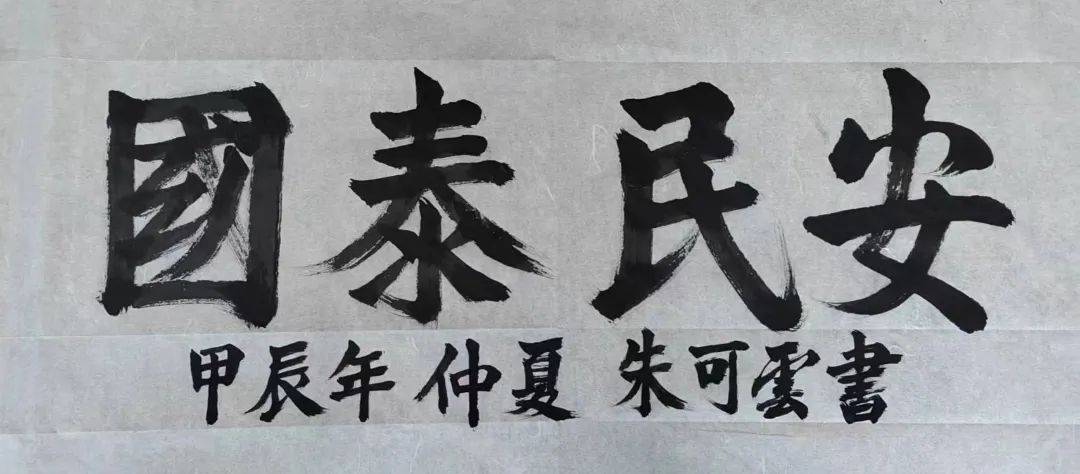 國泰民安
甲辰年仲夏 朱可雲書